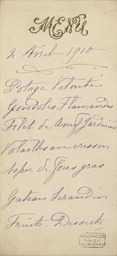 MENU
2 Avril 1910
Potage Velouté
Gondoles Flamandes
Filet de Boeuf Jardinière
Volailles au cresson
de foies gras
Gateau
Fruits. Desserts